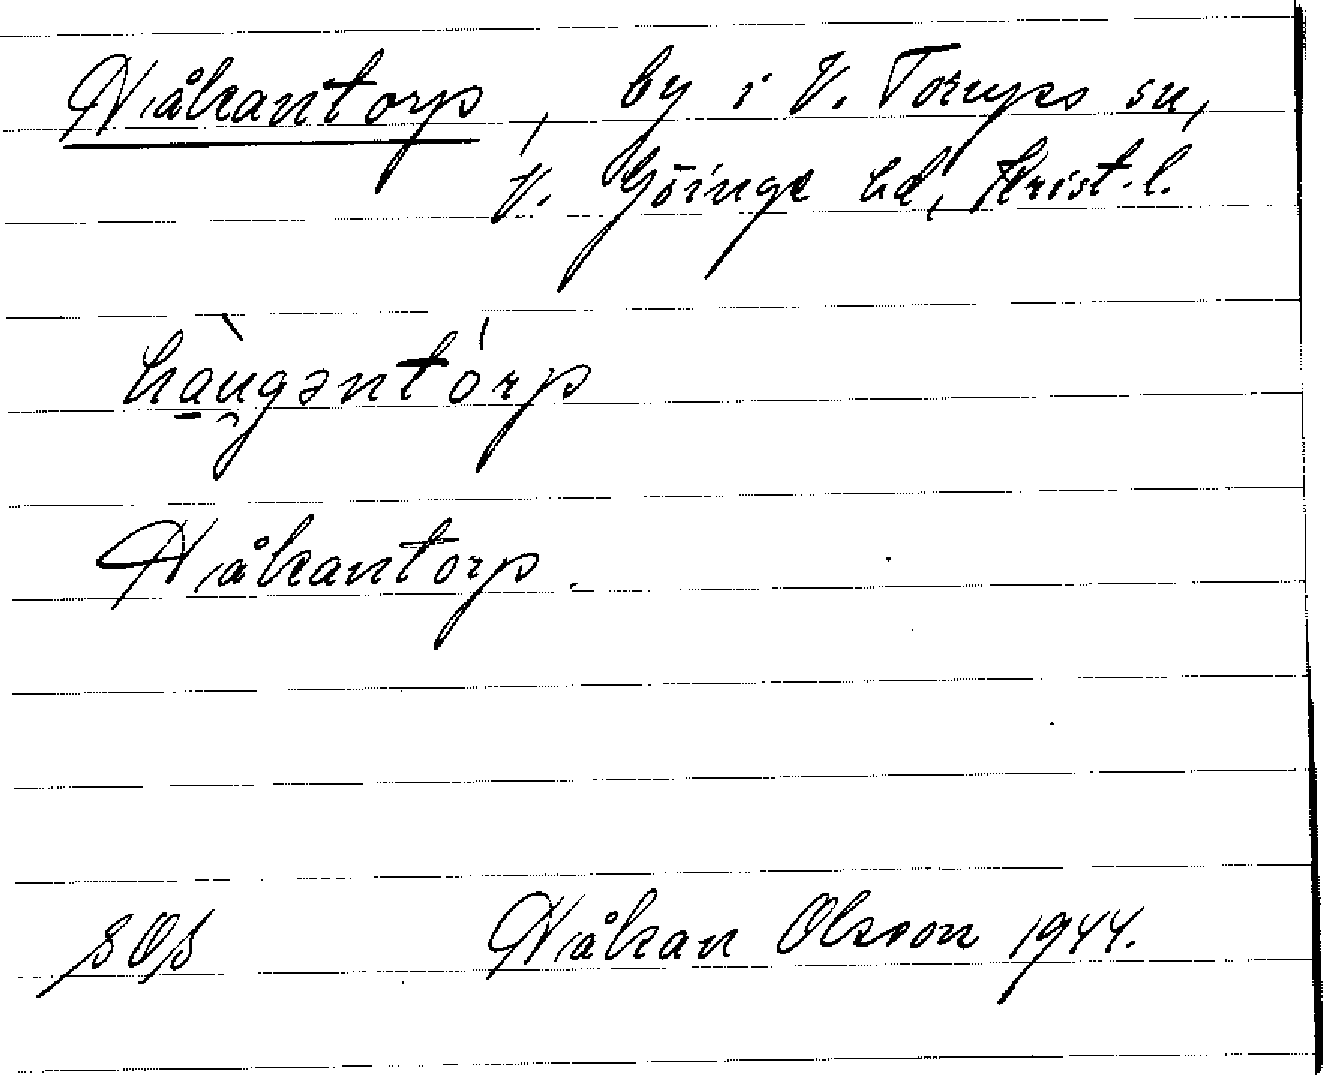 Håkantorp, by i V. Torups sn,
V. Göinge hd, Krist. l.
hàu̯gəntórp
Håkantorp.
Håkan Olsson 1944.